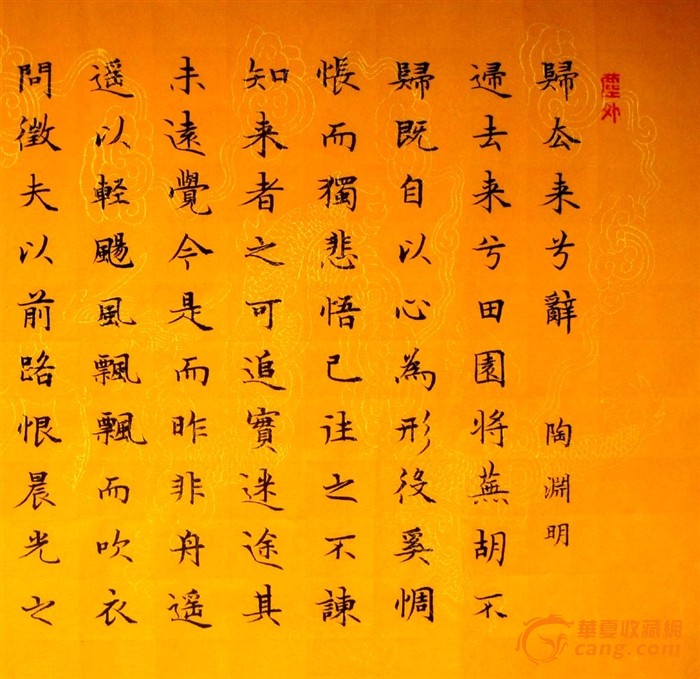 塵外
歸去来兮辭 陶淵明
歸去来兮田園将蕪胡不
歸既自以心為形役奚惆
悵而獨悲悟已往之不諫
知来者之可追實迷途其
未遠覺今是而昨非舟遥
遥以軽颺風飄飄而吹衣
問徵夫以前路恨晨光之
華夏收藏網
cang.com